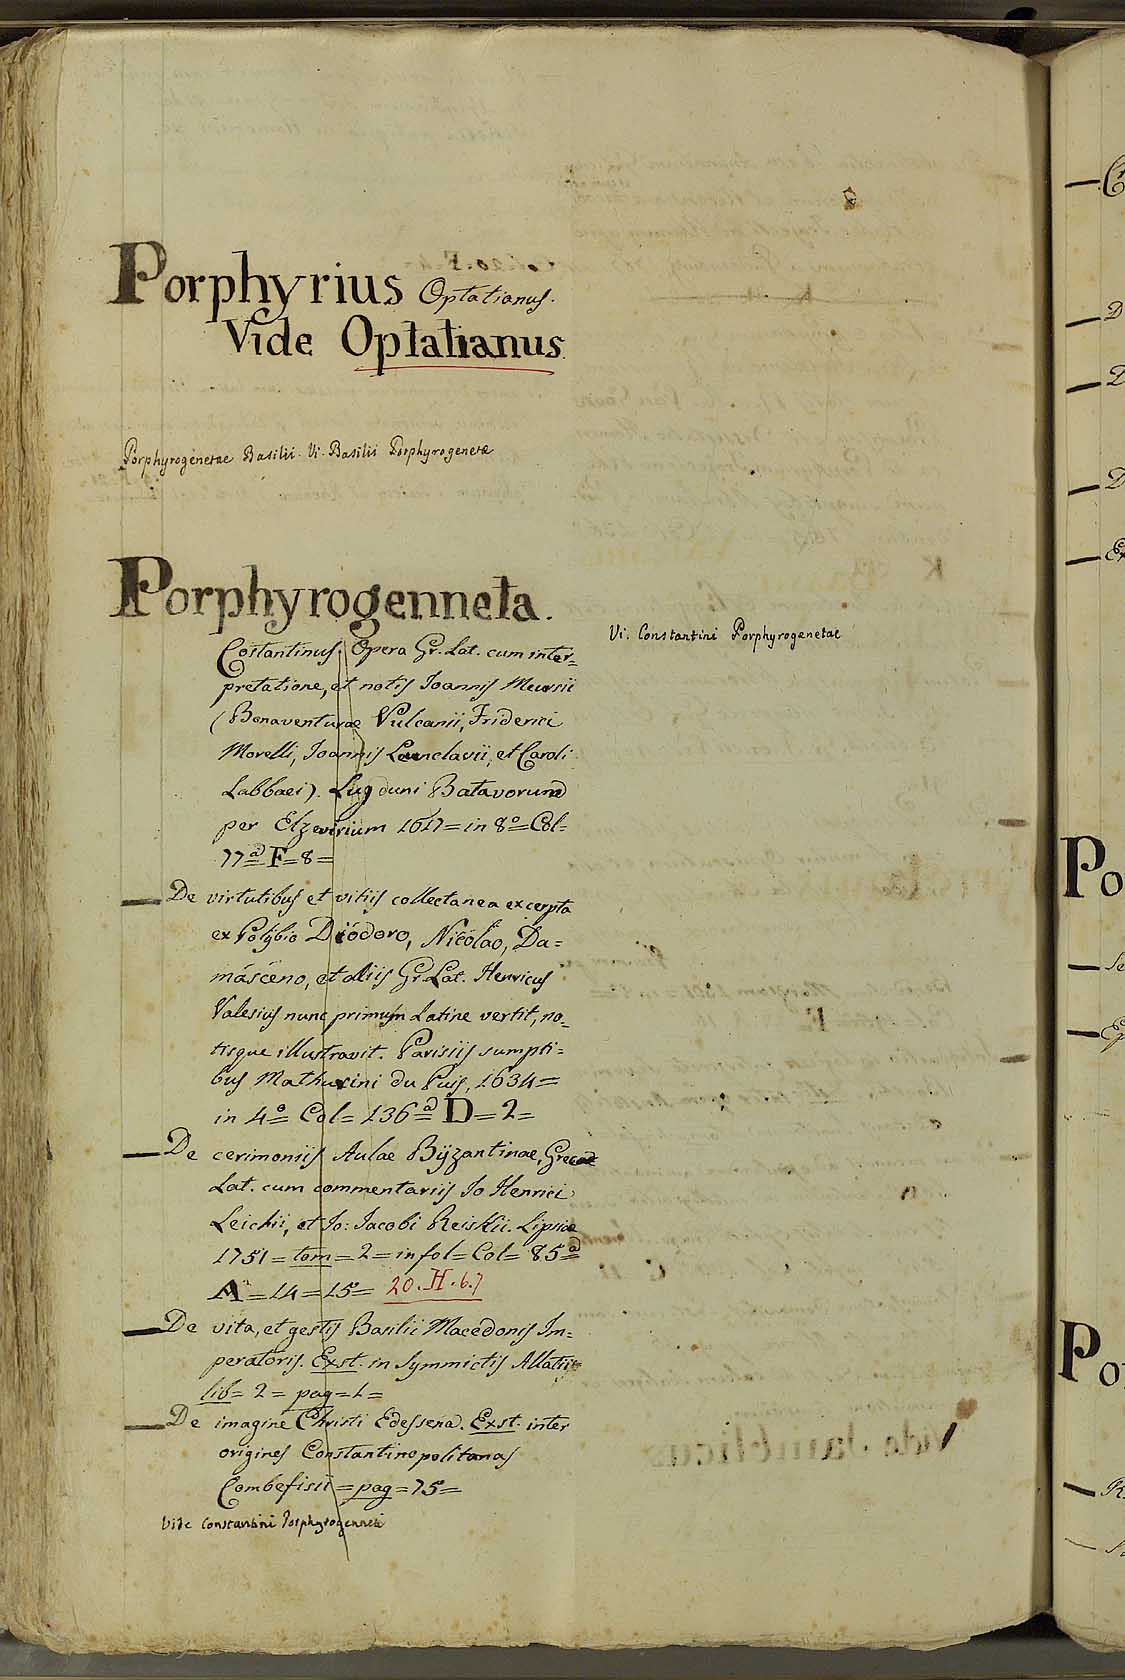 Porphyrius Optatianus.
Vide Optatianus
Porphyrogenetae Basilii. Vi. Basilii Porphyrogenetae
Porphyrogenneta.
Vi. Constantini Porphyrogenetae
Costantinus. Opera Gr. Lat. cum inter=
pretatione, et notis Joannis Meursii
(Bonaventurae Vulcanii, Friderici
Morelli, Joannis Leunclavii, et Caroli
Labbaei). Lugduni Batavorum
per Elzevirium 1617 = in 8º = Col=
77ª F = 8 =
— De virtutibus et vitiis collectanea excerpta
ex Polybio Diodoro, Nicolao, Da=
masceno, et aliis Gr. Lat. Henricus
Valesius nunc primum Latine vertit, no=
tisque illustravit. Parisiis sumpti=
bus Mathurini du Puis, 1634 =
in 4º = Col = 136ª D = 2 =
— De cerimoniis Aulae Byzantinae, Graece
Lat. cum commentariis Jo Henrici
Leichii, et Jo: Jacobi Reiskii. Lipsiae
1751 = tom = 2 = in fol = Col = 85ª
A = 14 = 15 = 20. H. 6. 7
— De vita, et gestis Basilii Macedonis Im=
peratoris. Exst. in Symmictis Allatii
lib = 2 = pag = 1 =
— De imagine Christi Edessena. Exst. inter
origines Constantinopolitanas
Combefisii = pag = 75 =
Vide Constantini Porphyrogenneti